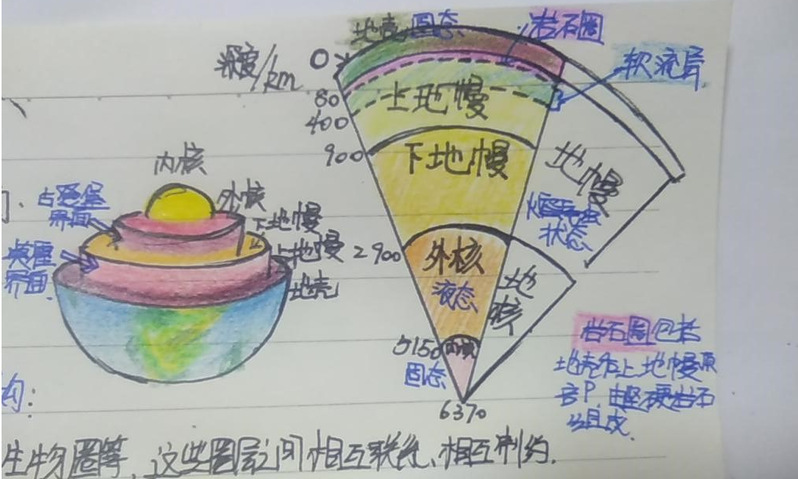 地壳 固态 岩石圈
深度/km
0
软流层
80
上地幔
400
900
下地幔
地幔
状态
2900
外核
液态
地核
5150
内核
固态
6370
内核
外核
古登堡
界面
下地幔
莫霍
界面
上地幔
地壳
岩石圈包括
地壳和上地幔顶
部，由坚硬岩石
组成
构：
生物圈等，这些圈层之间相互联系、相互制约.